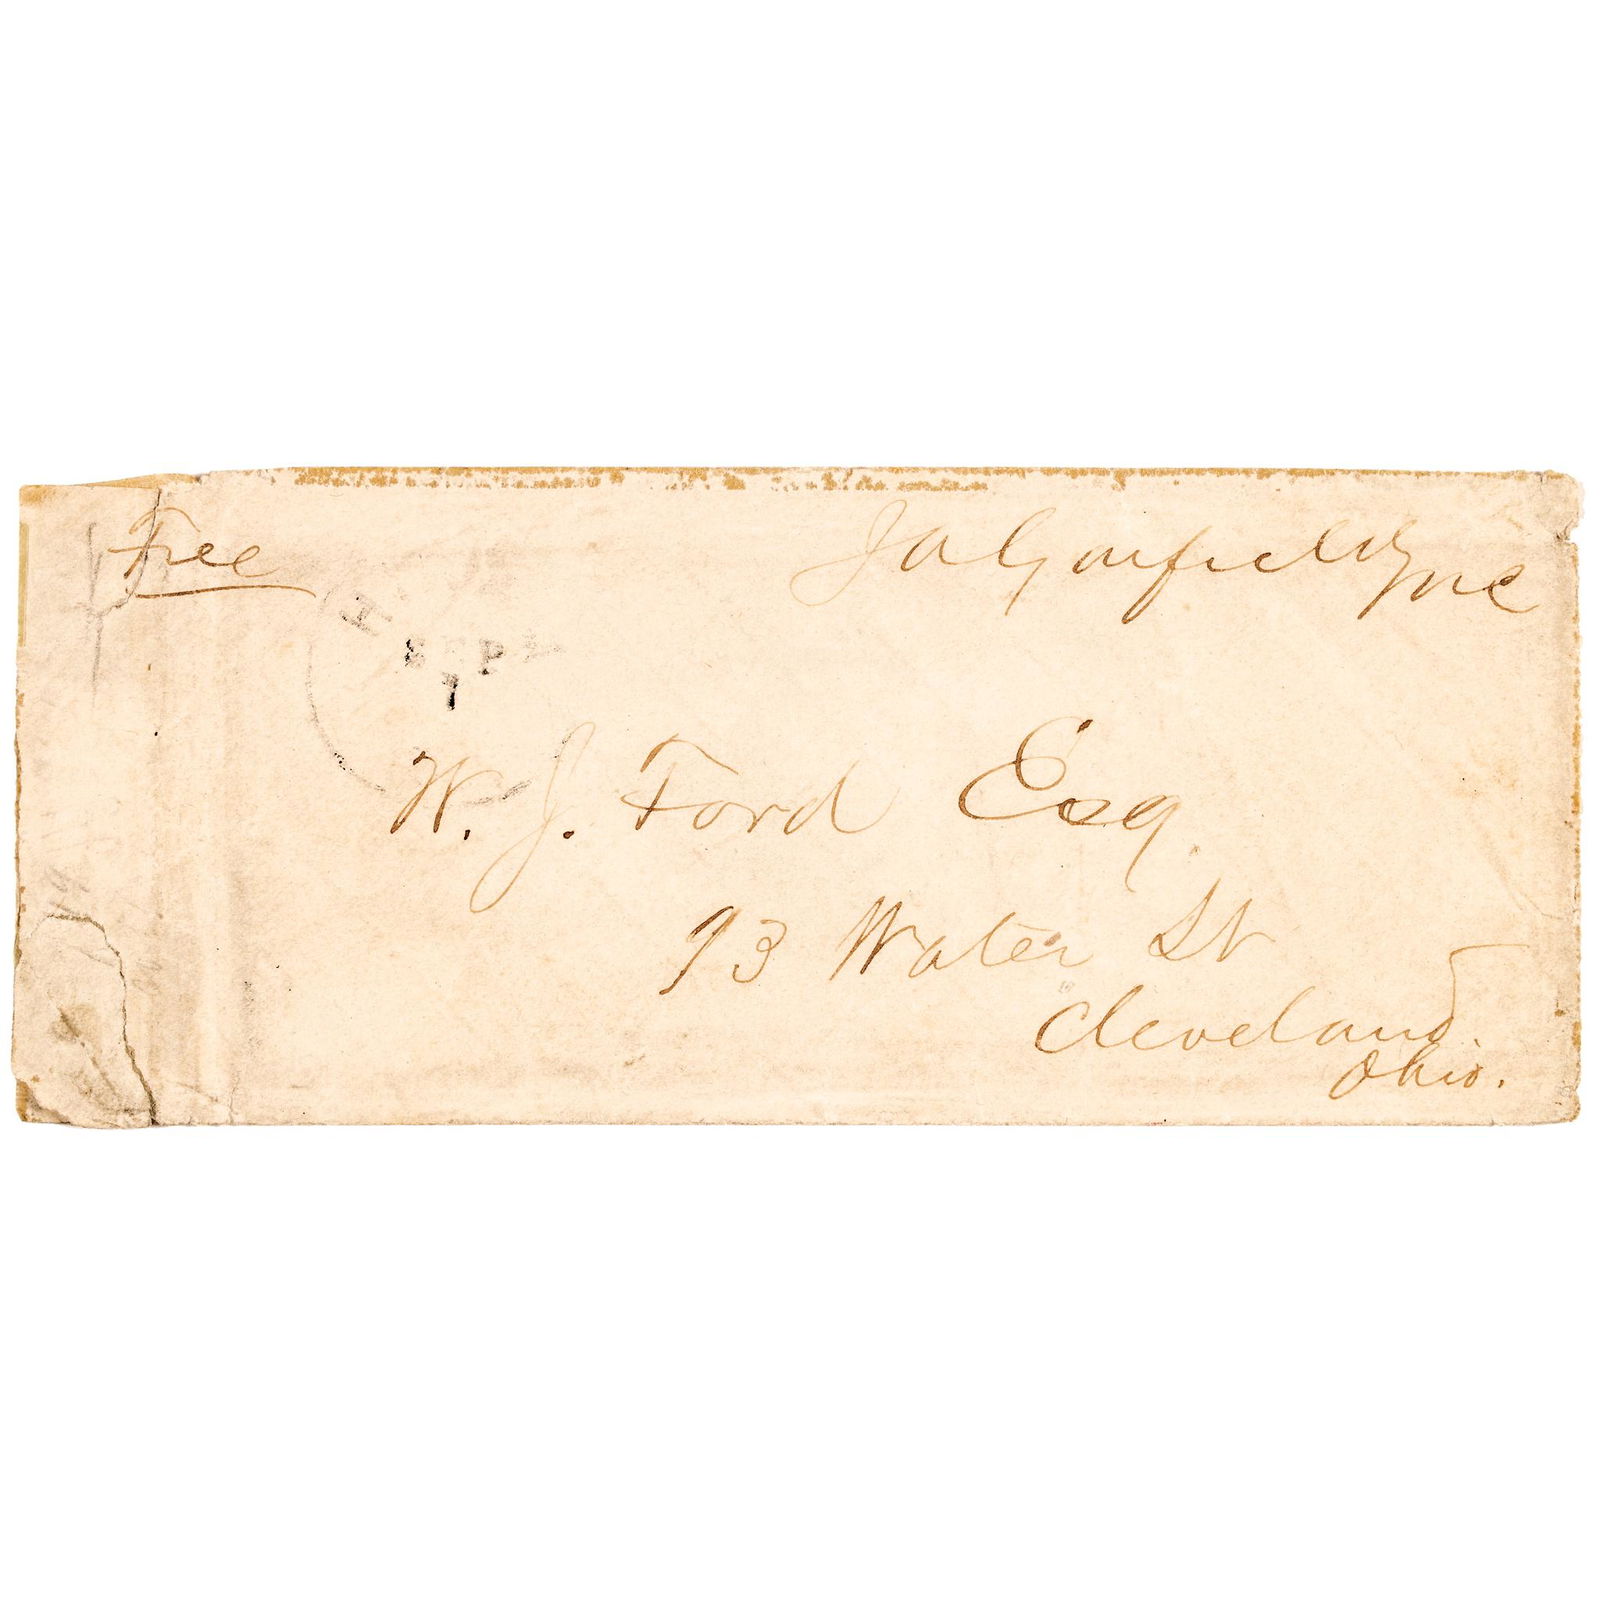 Free
JAGarfield MC
SEP
1
W. J. Ford Esq.
93 Water St
Cleveland
Ohio.